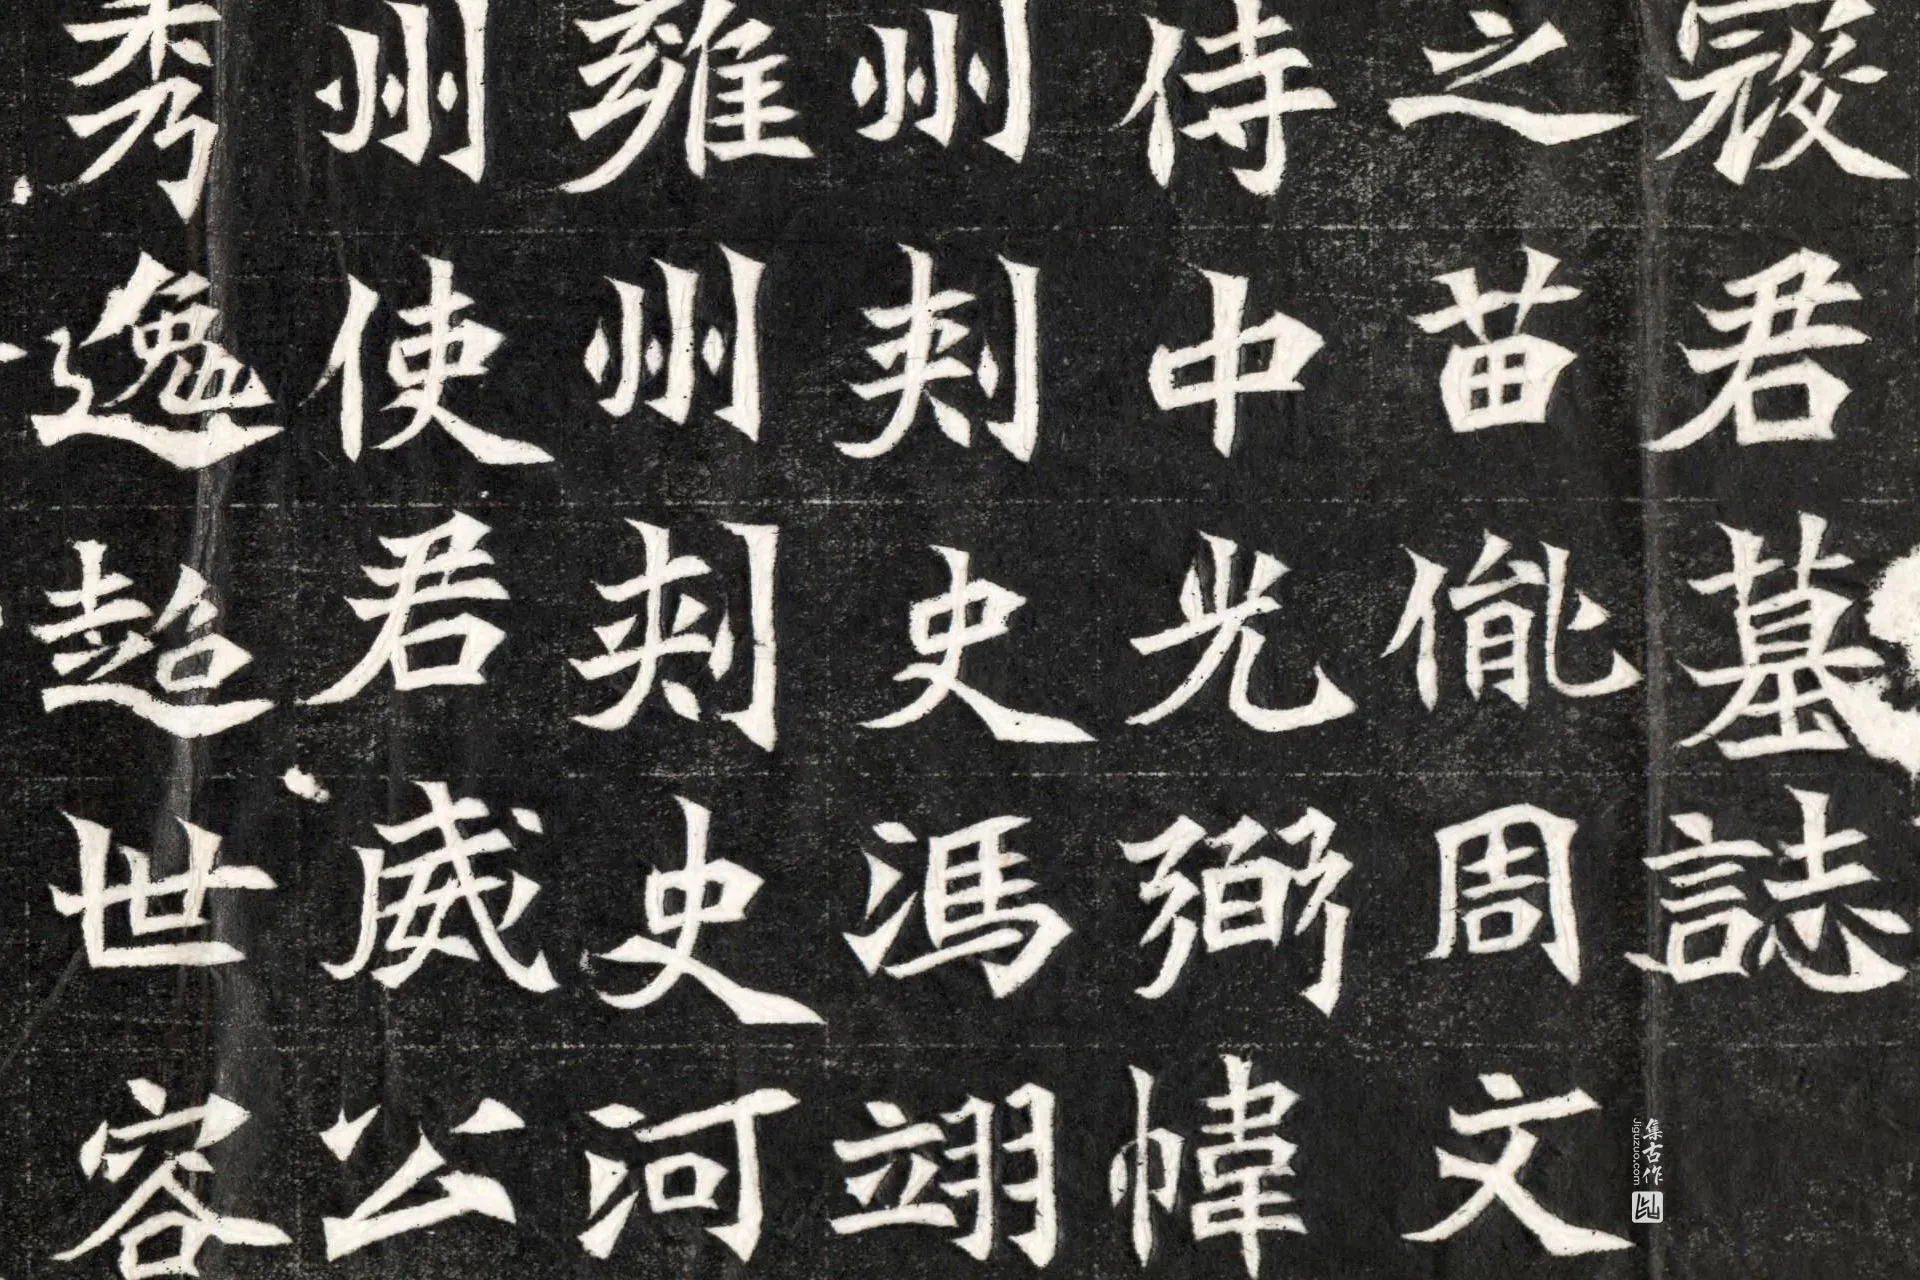 寇君墓誌
之苗胤周文
侍中光弼幃
州刺史馮翊
雍州刺史河
州使君威公
秀逸超世容
集古作
Jiguzuo.com